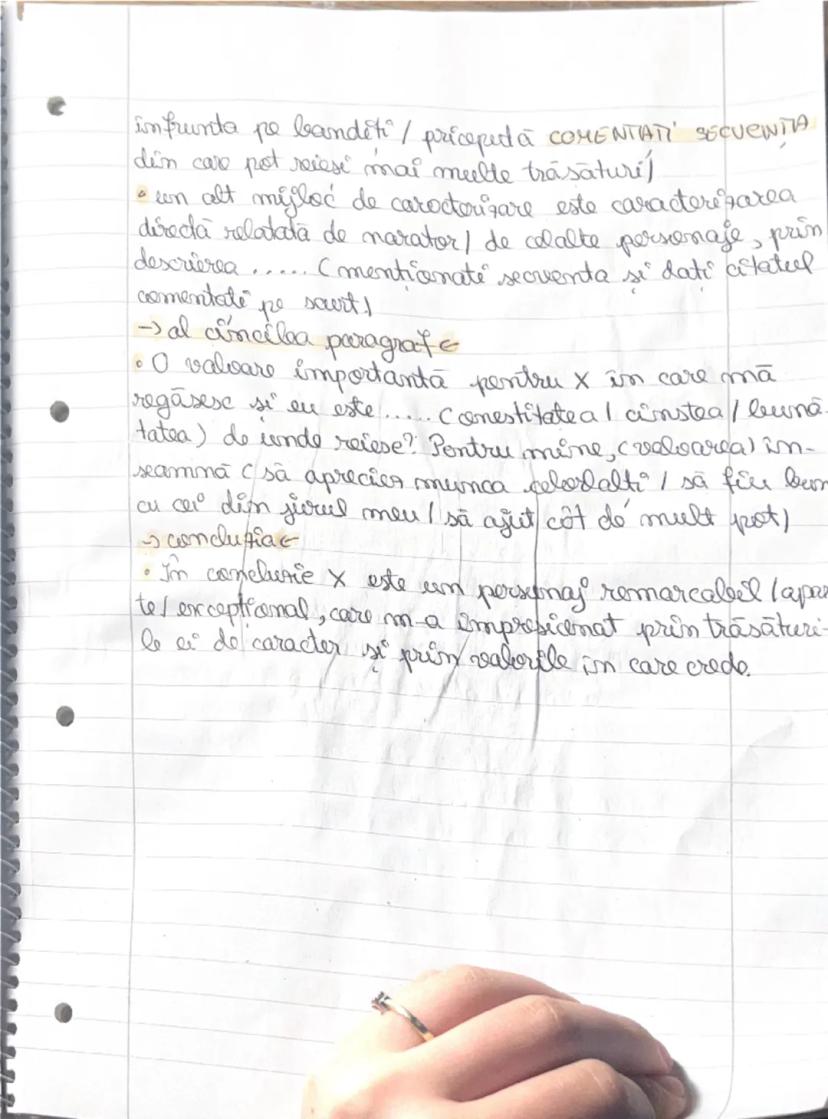 înfrunta pe bandiți / pricepută COMENTAȚI SECVENȚA
din care pot reiesi mai multe trăsături)
• un alt mijloc de caracterizare este caracterizarea
directă relatată de narator / de celalte personaje, prin
descrierea ..... (menționați secvența și dați citatul
comentați pe scurt)
→ al cincilea paragraf ←
• O valoare importantă pentru X în care mă
regăsesc și eu este ..... (onestitatea / cinstea / bună-
tatea) de unde reiese? Pentru mine, (valoarea) în-
seamnă (să apreciez munca celorlalți / să fiu bun
cu cei din jurul meu / să ajut cât de mult pot)
→ concluzia ←
• În concluzie X este un personaj remarcabil / apar
te / excepțional, care m-a impresionat prin trăsături-
le ei de caracter și prin valorile în care crede.